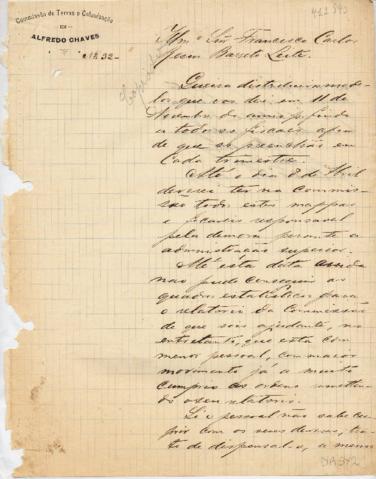 Commissão de Terras e Colonização
EM
ALFREDO CHAVES
Nº 32
Illmo Snr Francisco Carlos
Barreto Leite.
Queira distribuir os
que vos dei em 11 de
do anno findo
a todos os fiscaes afim
de que se preenchão em
cada trimestre.
Até o dia 8 de Abril
deverei ter na Commis-
são todos estes mappas
e ficareis responsavel
pela demora perante a
administração superior.
Até esta data ainda
não pude conseguir os
quadros estatisticos para
o relatorio da Commissão
de que sois ajudante, no
entretanto, que esta com
menor pessoal, com maior
movimento já a muito
cumprio as ordens
do seu relatorio.
Si o pessoal não sabe cum-
prir com os seus deveres, tra-
te de dispensal-o, a menos